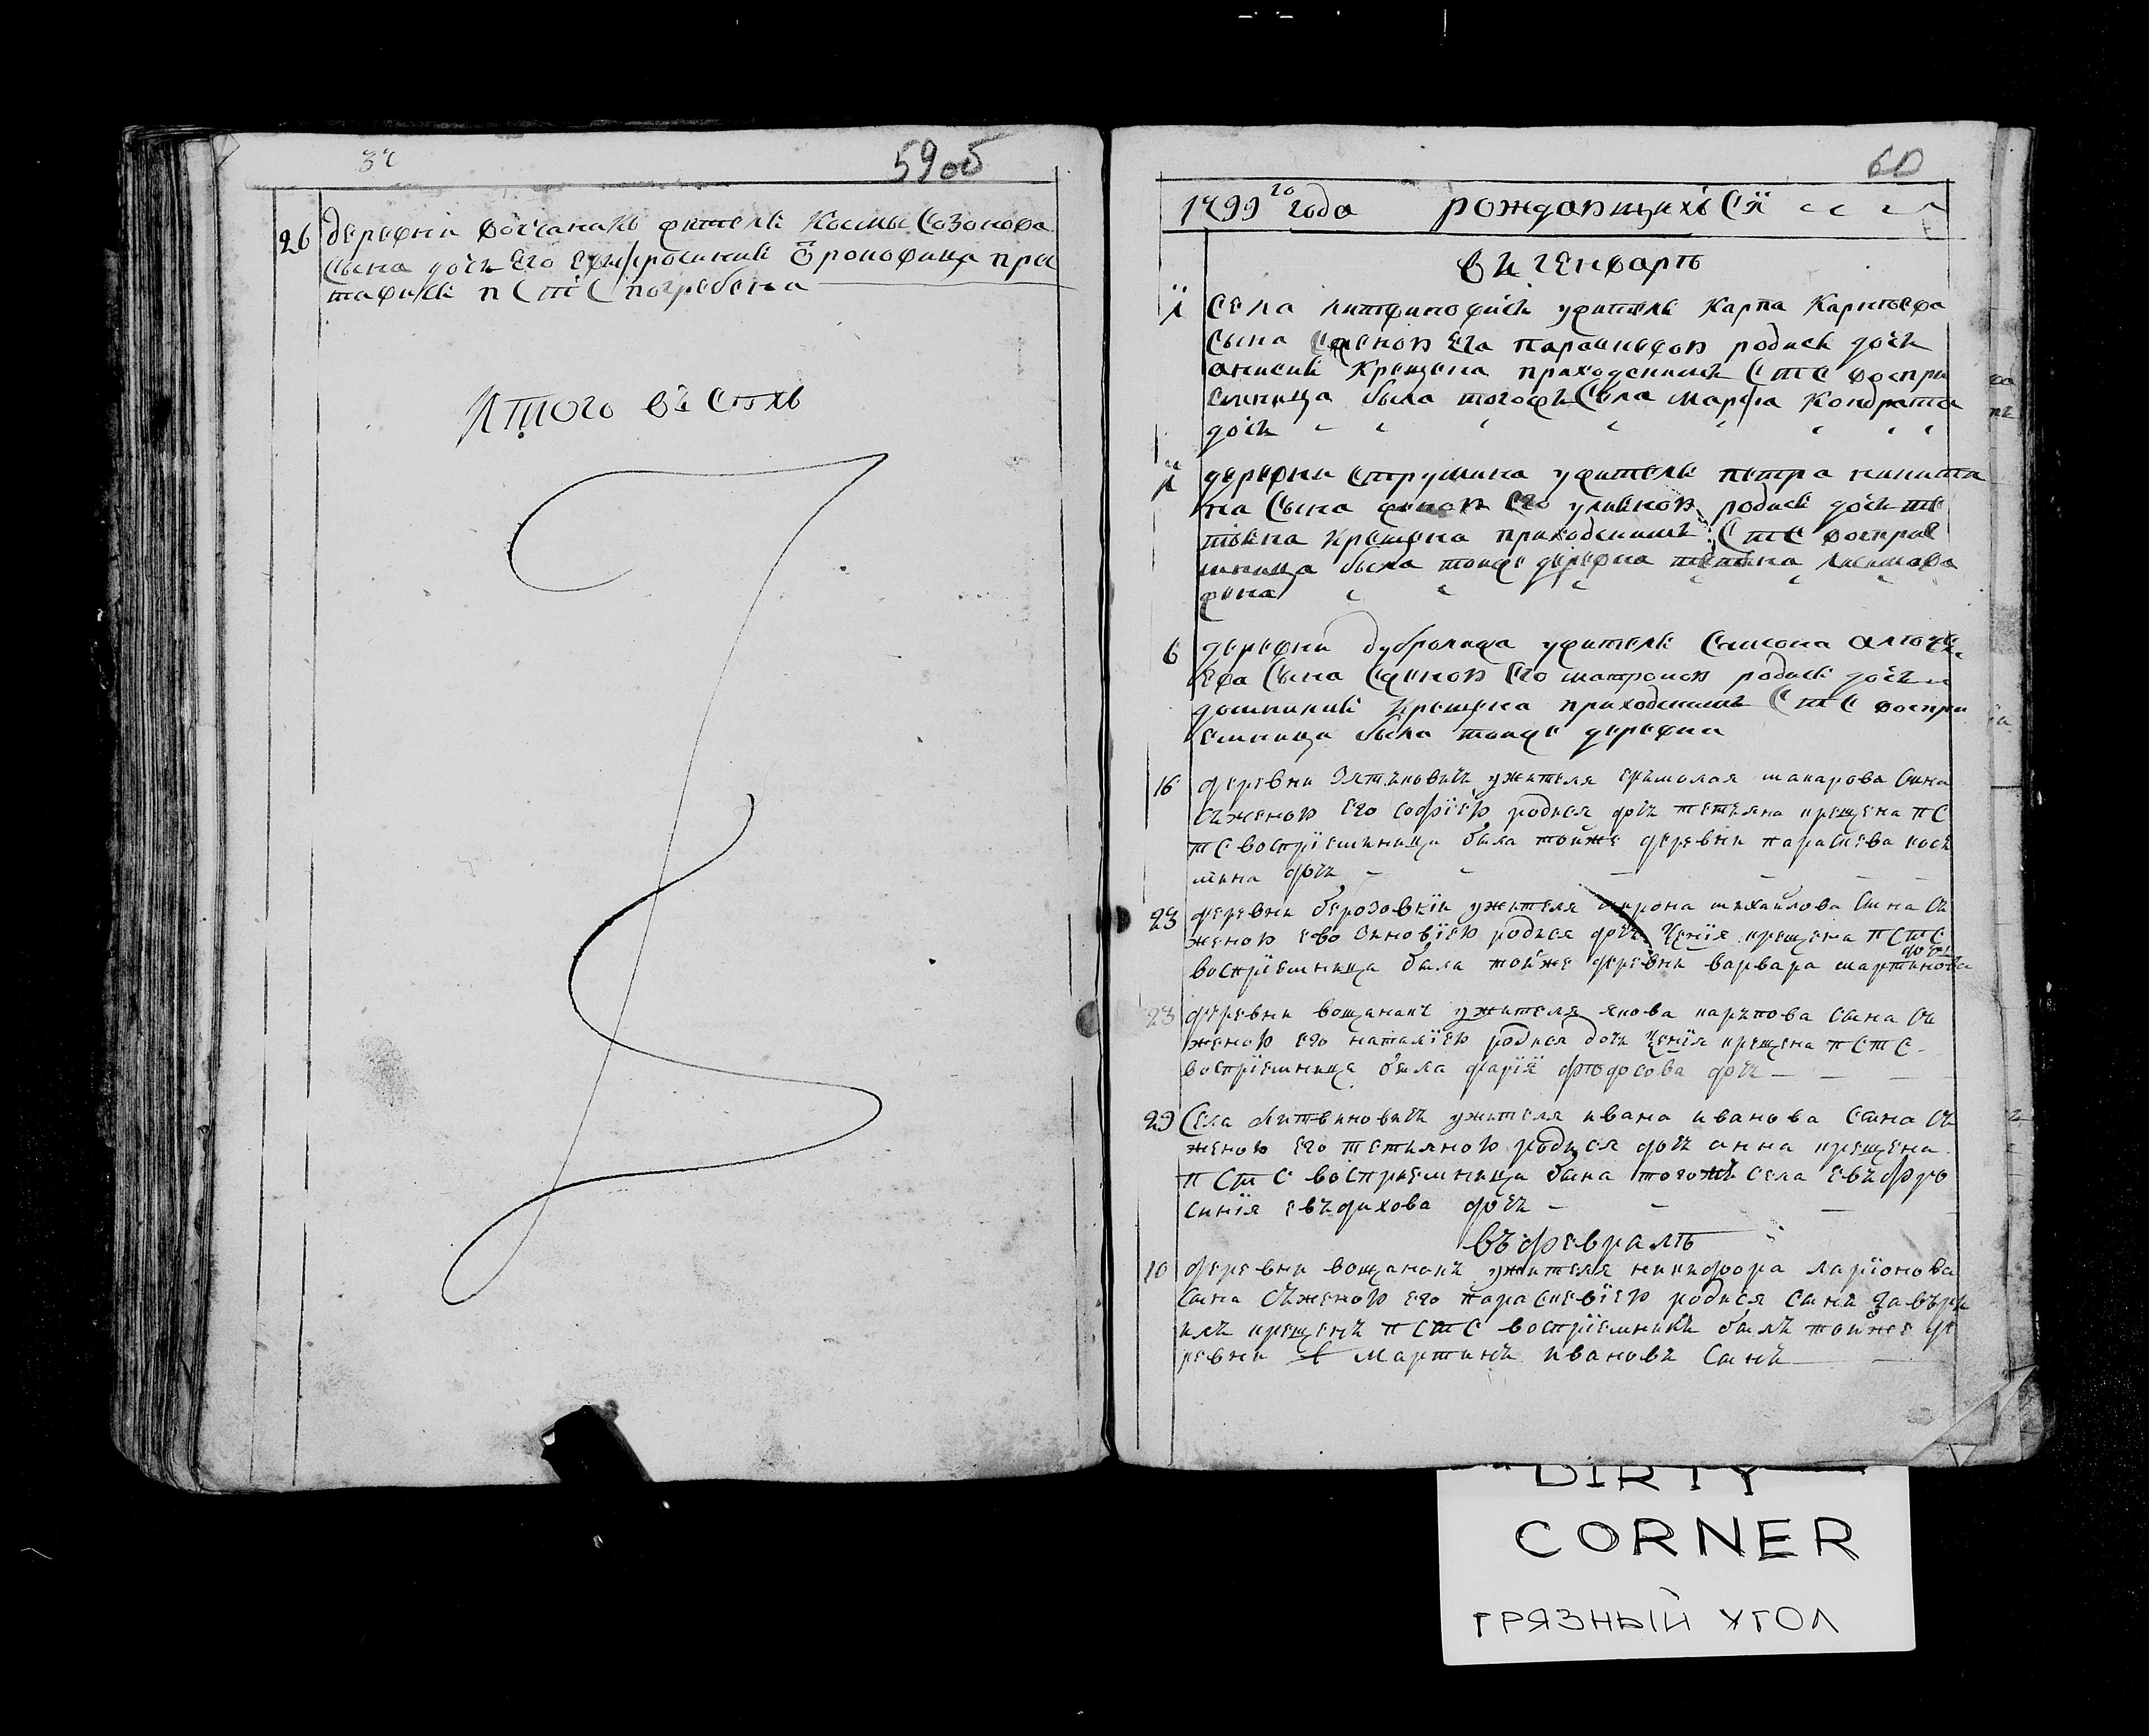 59об
26 деревни вощанакъ жителя Космы Созонова
сына дочь его ефросиния
преставися п С т С погребена
Итого въ стхъ
60
1799го года рождающихся
въ генваре
села литвиновичъ ужителя Карпа Карнеева
сына сженою его парасковою родися дочь
анисия крещена приходскимъ С т С воспри
емница была тогожъ села Марфа Кондрата
дочь
деревни струмина ужителя петра никити
на сына женою его улияною родися дочь те
тяна крещена приходскимъ С т С восприе
мница была тоиже деревни
жена
6 деревни дубролища ужителя Самсона
ева сына сженою его матроною родися дочь
домникия крещена приходскимъ С т С воспри
емница была тоиже деревни
16 деревни ужителя ермолая макарова сина
съженою его софїею родися дочь тетяна крещена п С
т С воспрїемница была тоиже деревни параскева косъ
мина дочь
23 деревни берозовкіи ужителя мирона михаилова сина съ
женою ево зиновїею родися дочь Ксенїя крещена п С т С
дочь
воспрїемница была тоиже деревни варвара мартинова
23 деревни вощанакъ ужителя якова карпова сына съ
женою его наталїею родися дочь Ксенїя крещена п С т С
воспрїемница была дарїя дочь
29 Села Литвиновичъ ужителя ивана иванова сына съ
женою его тетяною родися дочь анна крещена
п С т С восприемница была тогожъ села евъфро
синїя евъдихова дочь
въ феврале
10 деревни вощанакъ ужителя никифора ларїонова
сына съженою его параскевїею родися сынъ гавъри
илъ крещенъ п С т С воспрїемникъ былъ тоиже де
ревни Мартинъ ивановъ сынъ
DIRTY
CORNER
ГРЯЗНЫЙ УГОЛ